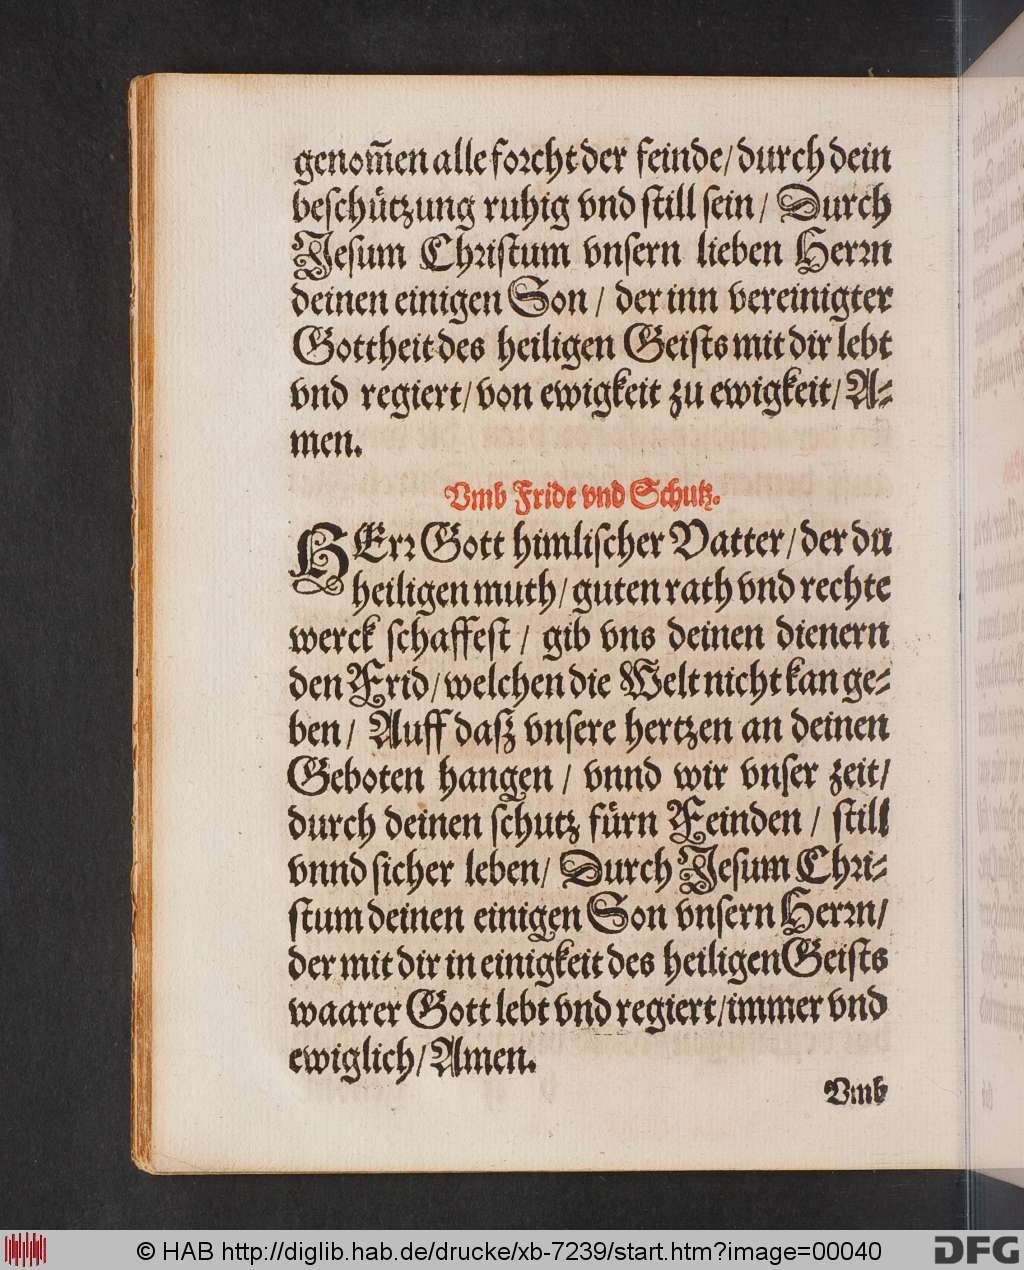 genom̃en alle forcht der feinde/ durch dein
beschützung ruhig vnd still sein/ Durch
Jesum Christum vnsern lieben Herrn
deinen einigen Son / der inn vereinigter
Gottheit des heiligen Geists mit dir lebt
vnd regiert/ von ewigkeit zu ewigkeit/ A-
men.
Vmb Fride vnd Schutz.
HErr Gott himlischer Vatter/ der du
heiligen muth/ guten rath vnd rechte
werck schaffest / gib vns deinen dienern
den Frid/ welchen die Welt nicht kan ge-
ben/ Auff dasz vnsere hertzen an deinen
Geboten hangen / vnnd wir vnser zeit/
durch deinen schutz fürn Feinden / still
vnnd sicher leben/ Durch Jesum Chri-
stum deinen einigen Son vnsern Herrn/
der mit dir in einigkeit des heiligen Geists
waarer Gott lebt vnd regiert/ immer vnd
ewiglich/ Amen.
Vmb
© HAB http://diglib.hab.de/drucke/xb-7239/start.htm?image=00040
DFG